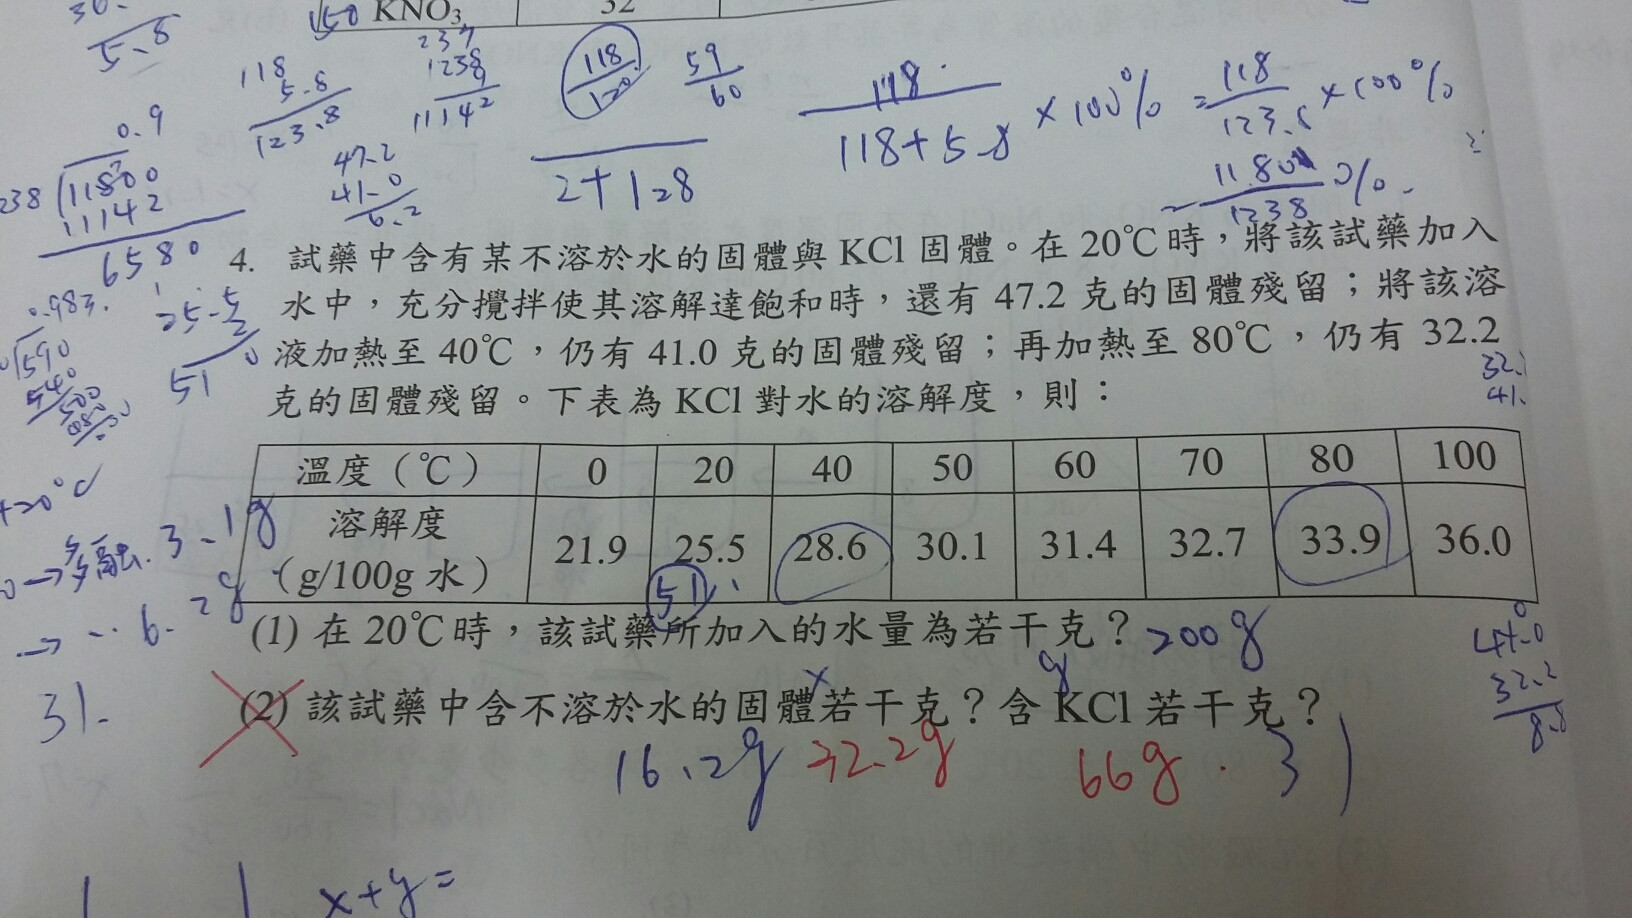 30.
5.8
150 KNO3 32
118
5.8
123.8
237
1238
9
11142
118
120
59
60
2+128
118
118+5.8 ×100% = 118 ×100%
123.8
= 11800 %
1238
0.9
238 11800
11142
6580
47.2
41.0
6.2
4. 試藥中含有某不溶於水的固體與 KCl 固體。在 20℃時,將該試藥加入
水中,充分攪拌使其溶解達飽和時,還有 47.2 克的固體殘留;將該溶
液加熱至 40℃,仍有 41.0 克的固體殘留;再加熱至 80℃,仍有 32.2
克的固體殘留。下表為 KCl 對水的溶解度,則:
0.983.
590
540
500
25.5
2
51 0
32.2
41.
溫度(℃) 0 20 40 50 60 70 80 100
溶解度
(g/100g 水) 21.9 25.5 28.6 30.1 31.4 32.7 33.9 36.0
51
20℃
→ 多融. 3.1g
→ 6.2g
31.
(1) 在 20℃時,該試藥所加入的水量為若干克? 200g
x y
(2) 該試藥中含不溶於水的固體若干克?含 KCl 若干克?
16.2g 32.2g 66g . 31
41.0
32.2
8.8
x+y=